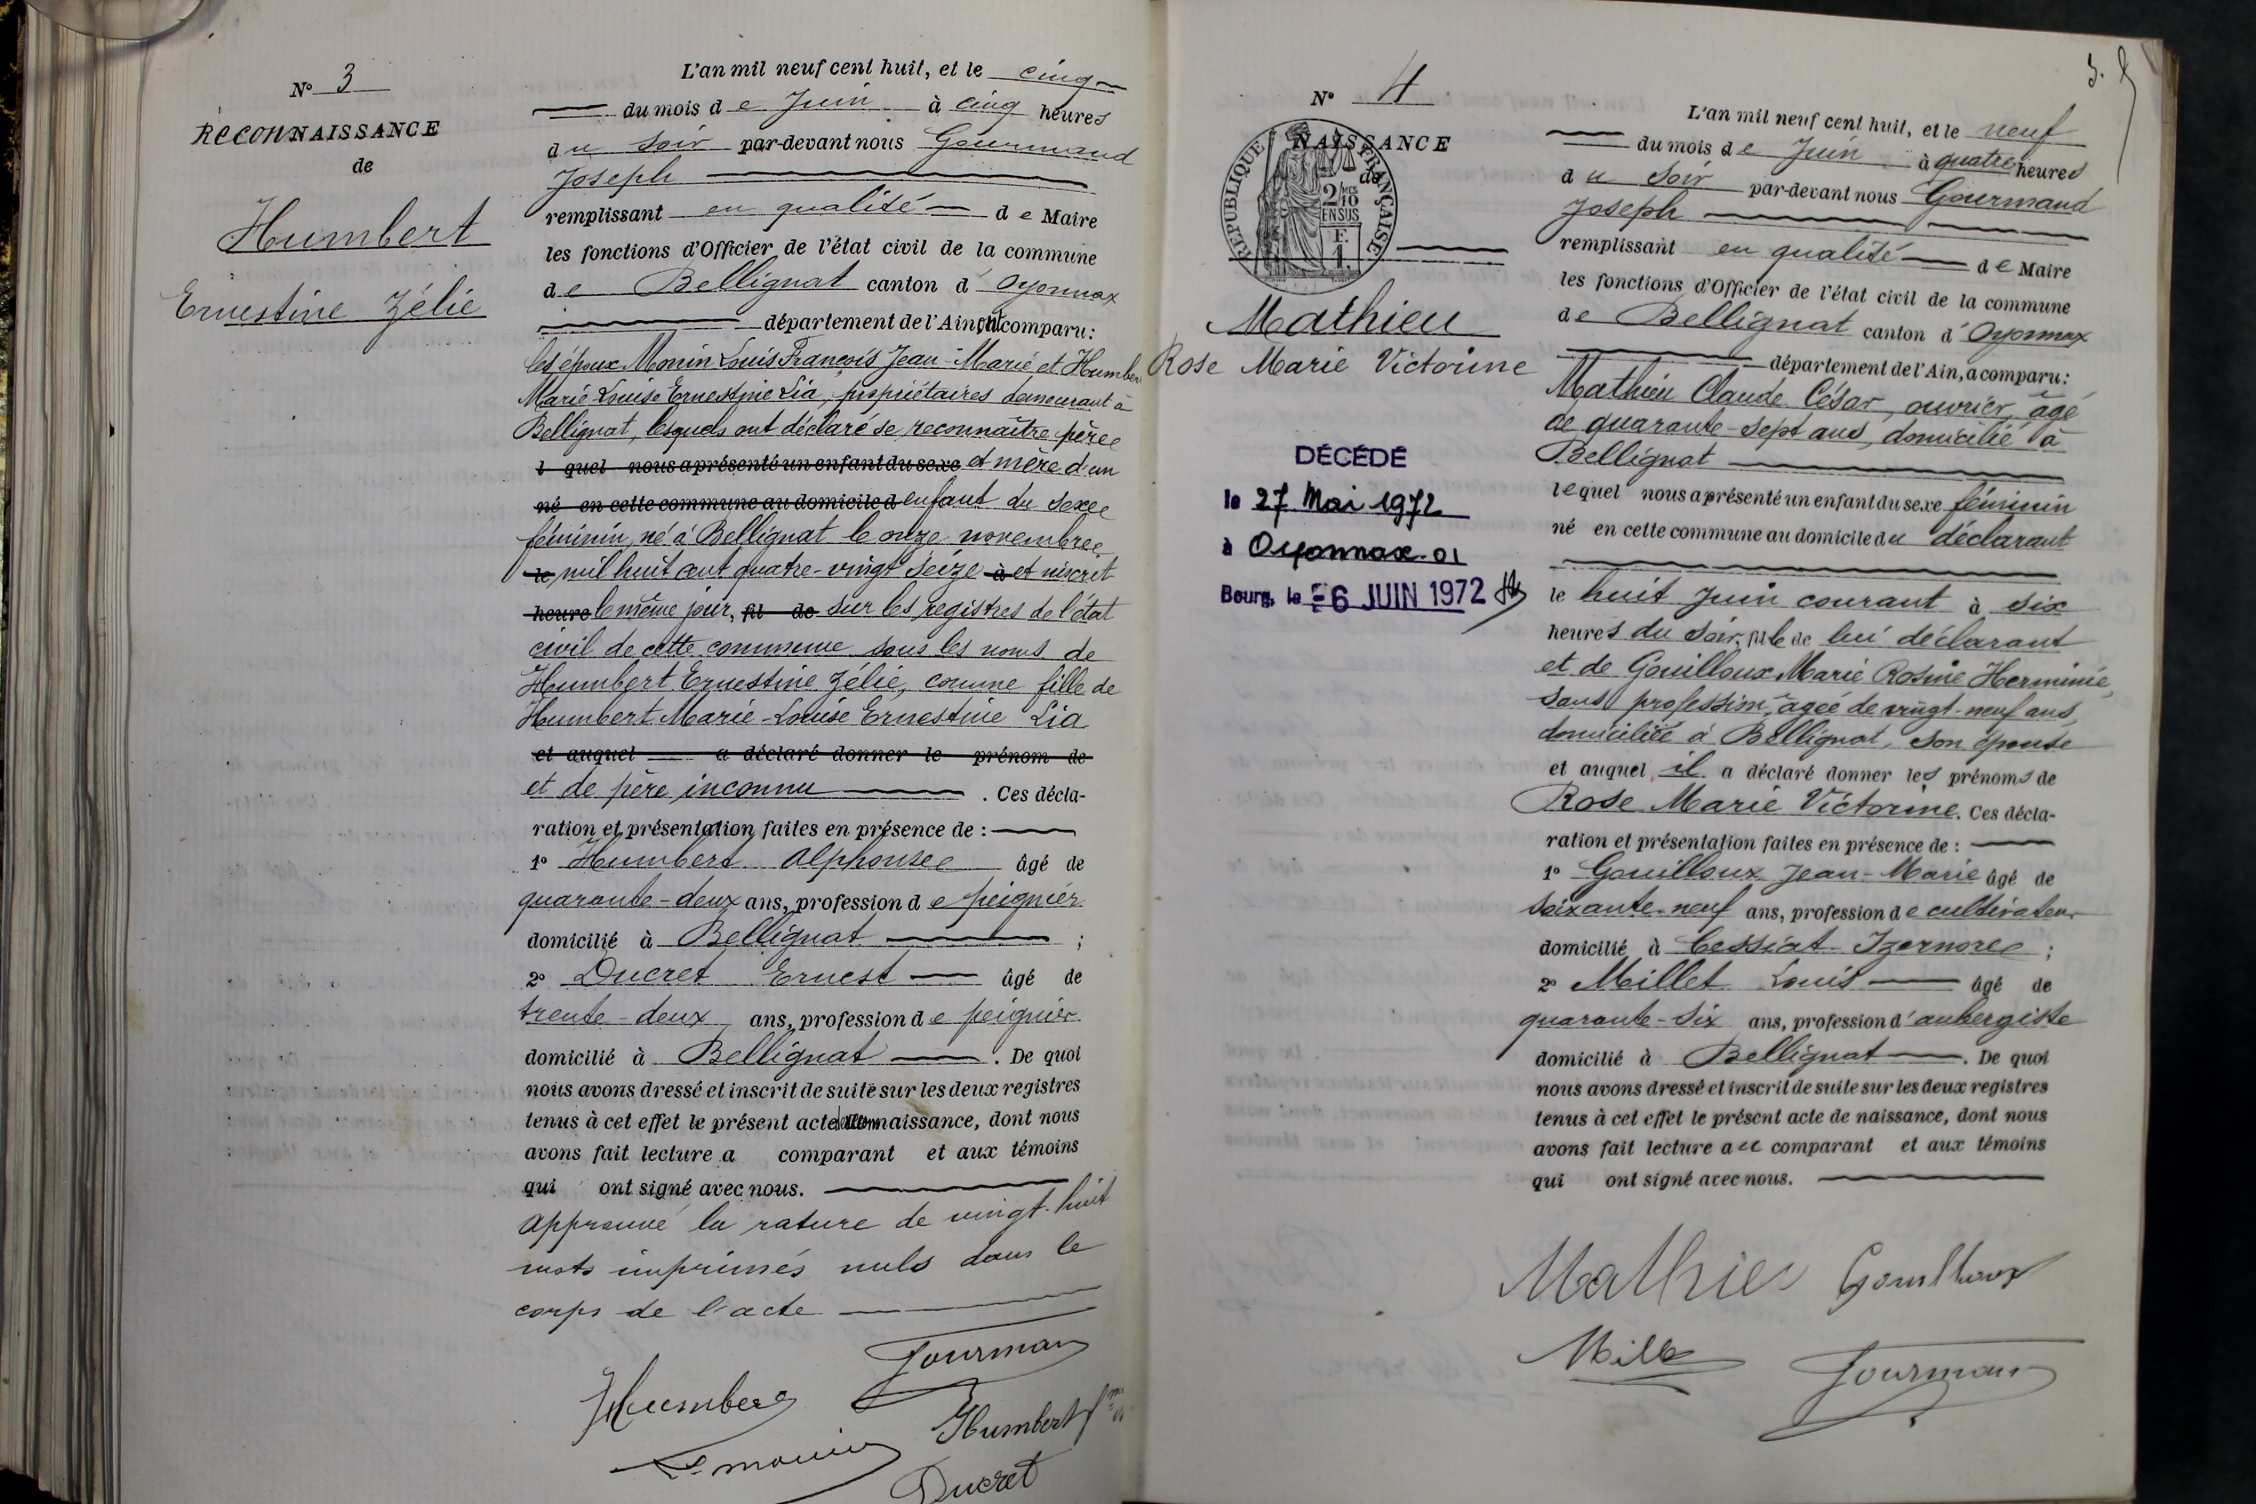 N° 3
RECONNAISSANCE
de
Humbert
Ernestine Zélie
L'an mil neuf cent huit, et le cinq
du mois de Juin à cinq heures
du soir par-devant nous Gourmand
Joseph
remplissant en qualité de Maire
les fonctions d'Officier de l'état civil de la commune
de Bellignat canton d'Oyonnax
département de l'Ain, ont comparu :
les époux Monin Louis François Jean-Marie et Humber
Marie Louise Ernestine Lia, propriétaires demeurant à
Bellignat, lesquels ont déclaré se reconnaître père
l quel nous a présenté un enfant du sexe et mère d'un
né en cette commune au domicile d enfant du sexe
féminin, né à Bellignat le onze novembre
le mil huit cent quatre-vingt seize à et inscrit
heure le même jour, fil de sur les registres de l'état
civil de cette commune sous les noms de
Humbert Ernestine Zélie, comme fille de
Humbert Marie-Louise Ernestine Lia
et auquel a déclaré donner le prénom de
et de père inconnu . Ces décla-
ration et présentation faites en présence de :
1° Humbert Alphonse âgé de
quarante-deux ans, profession de peignier
domicilié à Bellignat ;
2° Ducret Ernest âgé de
trente-deux ans, profession de peignier
domicilié à Bellignat . De quoi
nous avons dressé et inscrit de suite sur les deux registres
tenus à cet effet le présent acte naissance, dont nous
avons fait lecture a comparant et aux témoins
qui ont signé avec nous.
approuvé la rature de vingt-huit
mots imprimés nuls dans le
corps de l'acte
Gourman
Humbert
Humbert fme
L. monin
Ducret
N° 4
NAISSANCE
de
REPUBLIQUE FRANÇAISE
2/10 MES
EN SUS
F.
1.
Mathieu
Rose Marie Victorine
DÉCÉDÉ
le 27 Mai 1972
à Oyonnax-01
Bourg, le -6 JUIN 1972
L'an mil neuf cent huit, et le neuf
du mois de Juin à quatre heures
du soir par-devant nous Gourmand
Joseph
remplissant en qualité de Maire
les fonctions d'Officier de l'état civil de la commune
de Bellignat canton d'Oyonnax
département de l'Ain, a comparu :
Mathieu Claude César, ouvrier, âgé
de quarante-sept ans, domicilié à
Bellignat
lequel nous a présenté un enfant du sexe féminin
né en cette commune au domicile du déclarant
le huit Juin courant à six
heures du soir, fille de lui déclarant
et de Gouilloux Marie Rosine Herminie,
sans profession, âgée de vingt-neuf ans,
domiciliée à Bellignat, son épouse
et auquel il a déclaré donner les prénoms de
Rose Marie Victorine. Ces décla-
ration et présentation faites en présence de :
1° Gouilloux Jean-Marie âgé de
soixante-neuf ans, profession de cultivateur
domicilié à Cessiat-Izernore ;
2° Millet Louis âgé de
quarante-six ans, profession d'aubergiste
domicilié à Bellignat . De quoi
nous avons dressé et inscrit de suite sur les deux registres
tenus à cet effet le présent acte de naissance, dont nous
avons fait lecture au comparant et aux témoins
qui ont signé avec nous.
Mathieu Gouilloux
Mille
Gourman